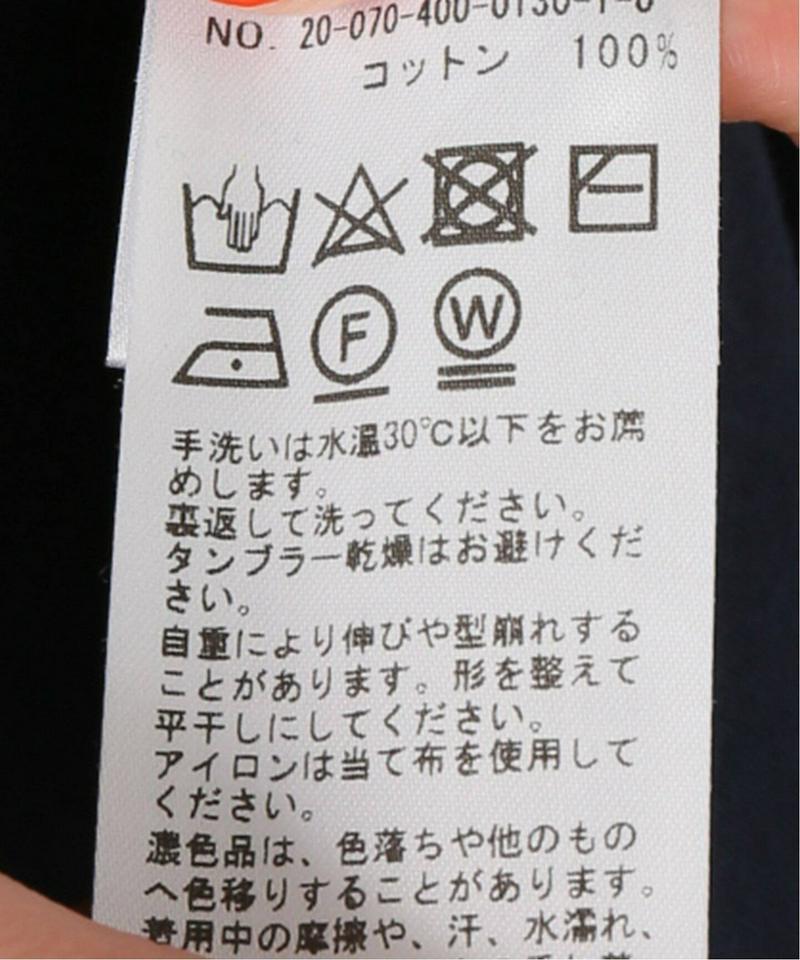 NO. 20-070-400-0130-1-6
コットン 100%
F
W
手洗いは水温30℃以下をお薦
めします。
裏返して洗ってください。
タンブラー乾燥はお避けくだ
さい。
自重により伸びや型崩れする
ことがあります。形を整えて
平干しにしてください。
アイロンは当て布を使用して
ください。
濃色品は、色落ちや他のもの
へ色移りすることがあります。
着用中の摩擦や、汗、水濡れ、